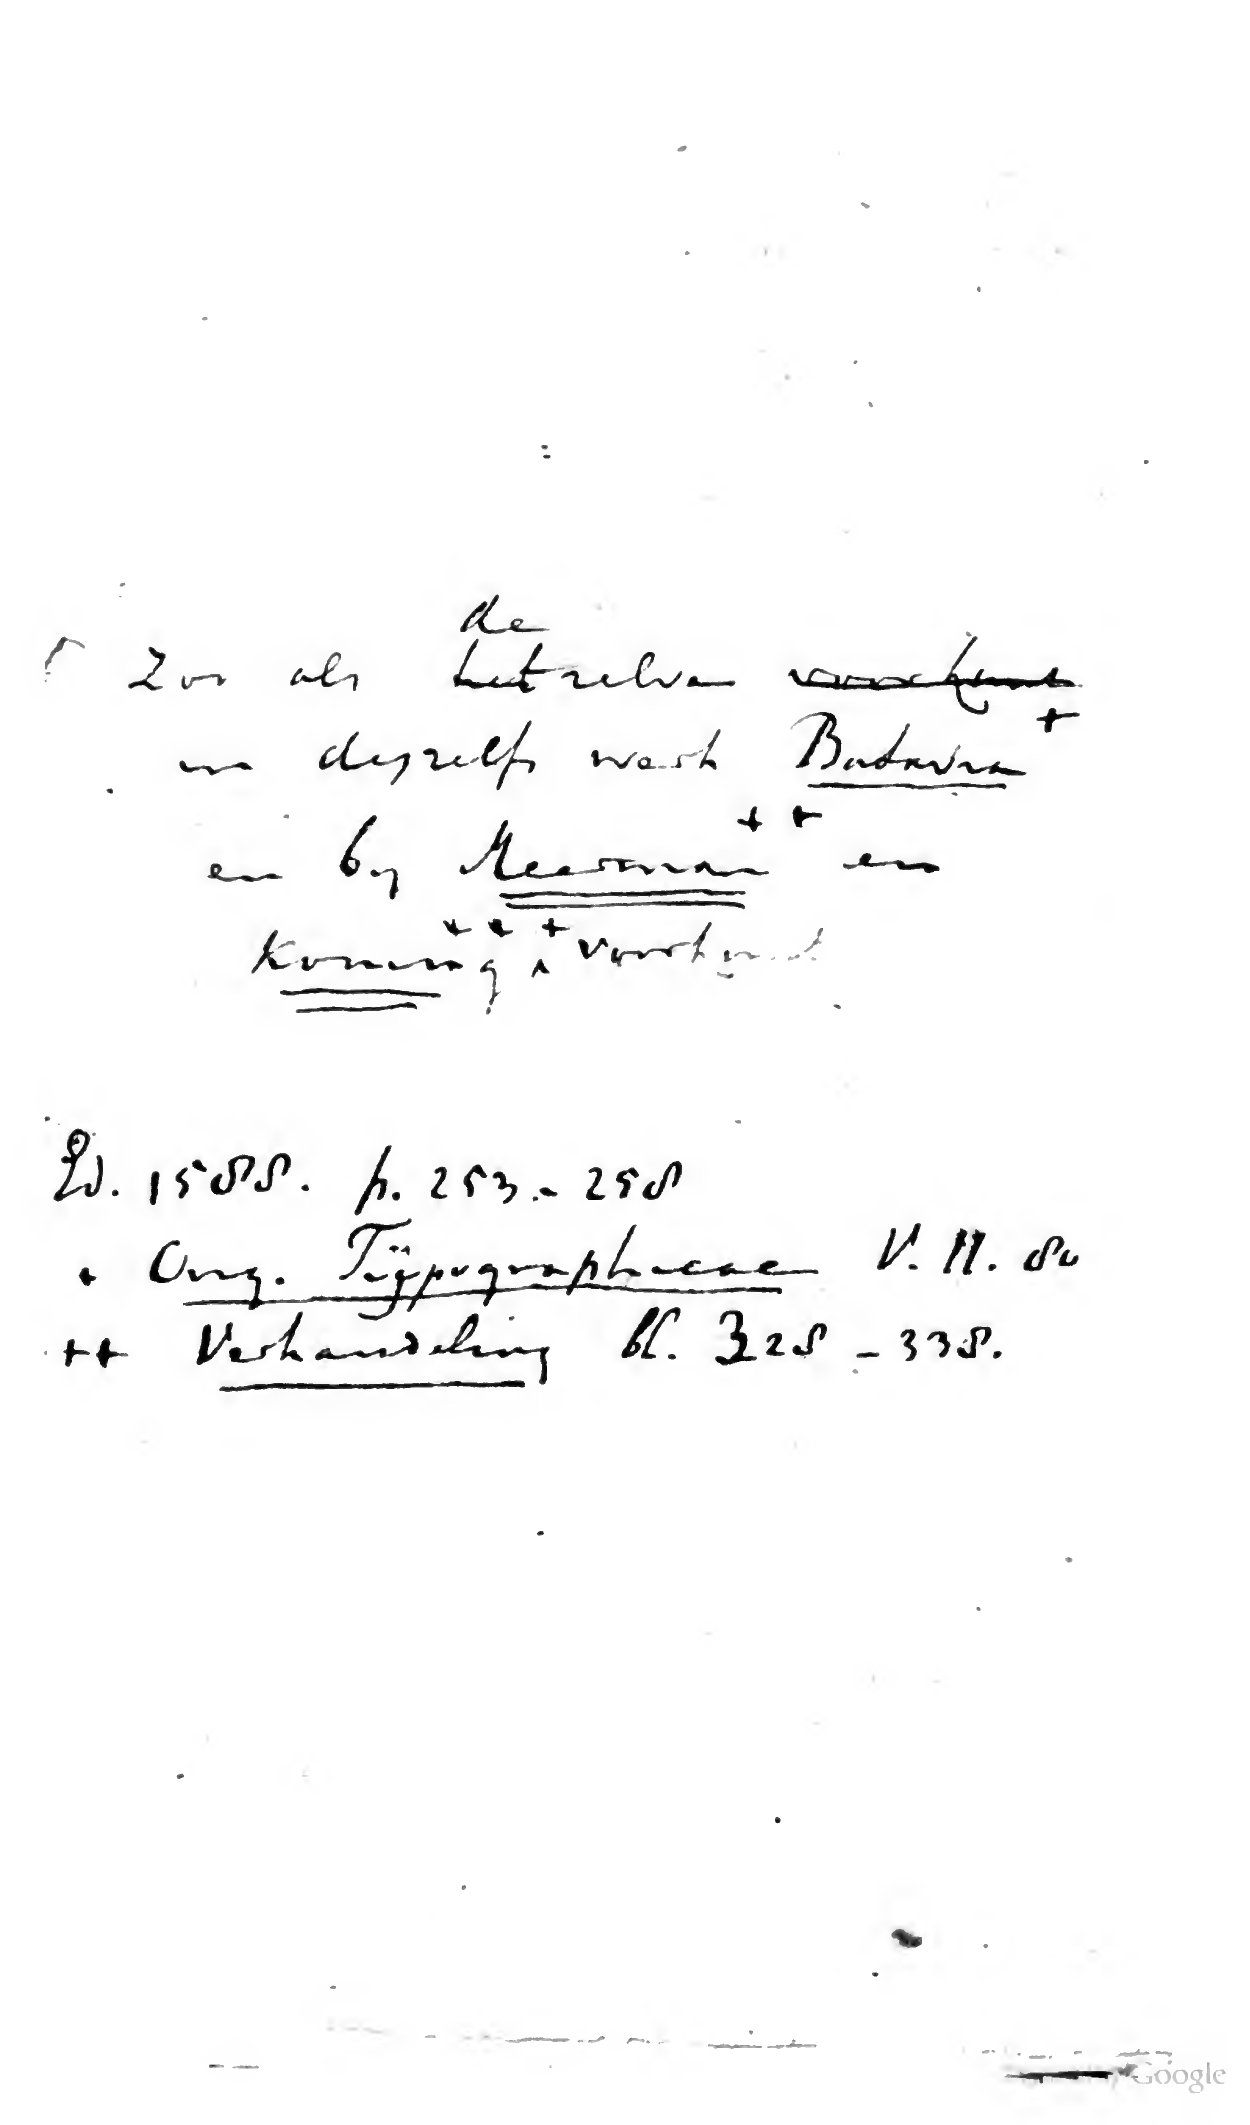 de
Zoo als hetzelve voorkomt
in deszelfs werk Batavia +
en by Meerman ++ en
Koning +++ ^ voorkomt
Ed. 1588. p. 253 - 258
+ Orig. Typographicae V. II. 80
++ Verhandeling bl. 328 - 338.
Google